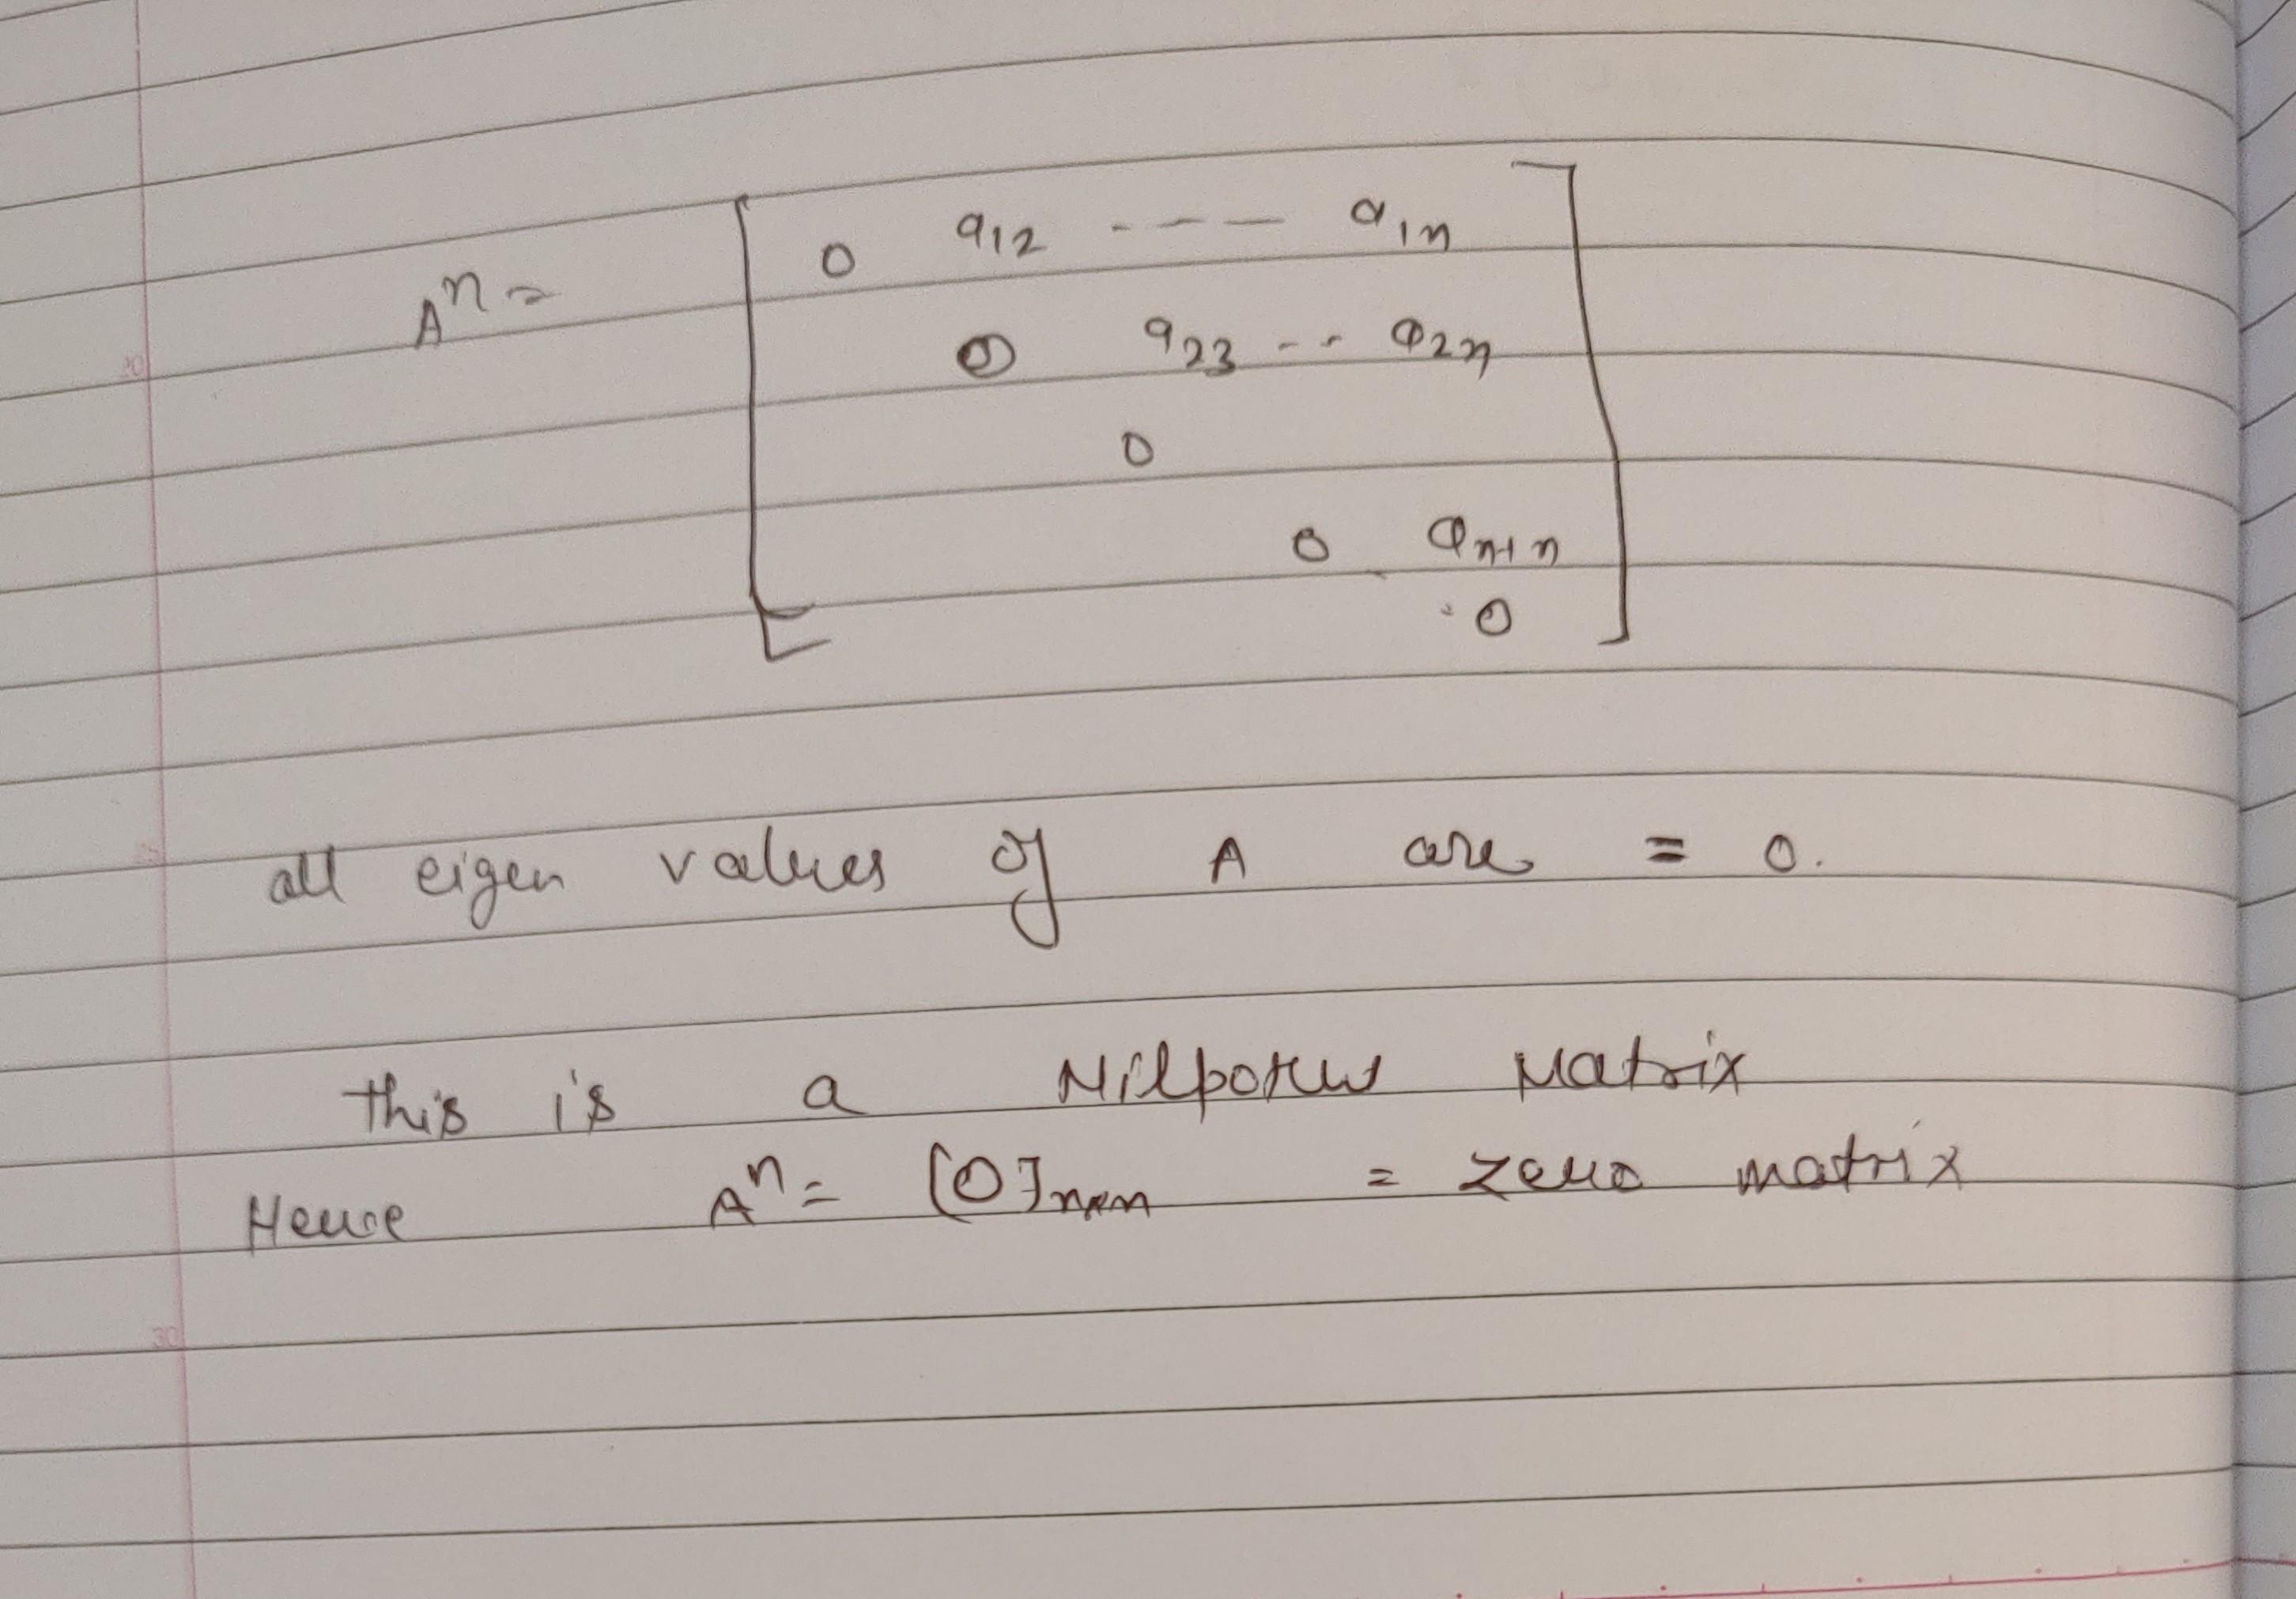 20
Aⁿ =
0 a₁₂ - - - - a₁ₙ
0 a₂₃ - - a₂ₙ
0
0 aₙ₋₁ ₙ
0
25
all eigen values of A are = 0.
this is a Nilpotent Matrix
Hence Aⁿ = [0]ₙₓₙ = zero matrix
30